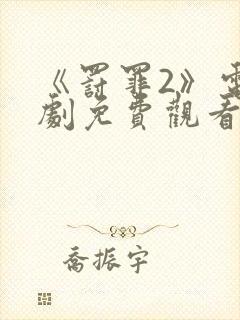 《罰罪2》電
劇免費觀看
喬振宇